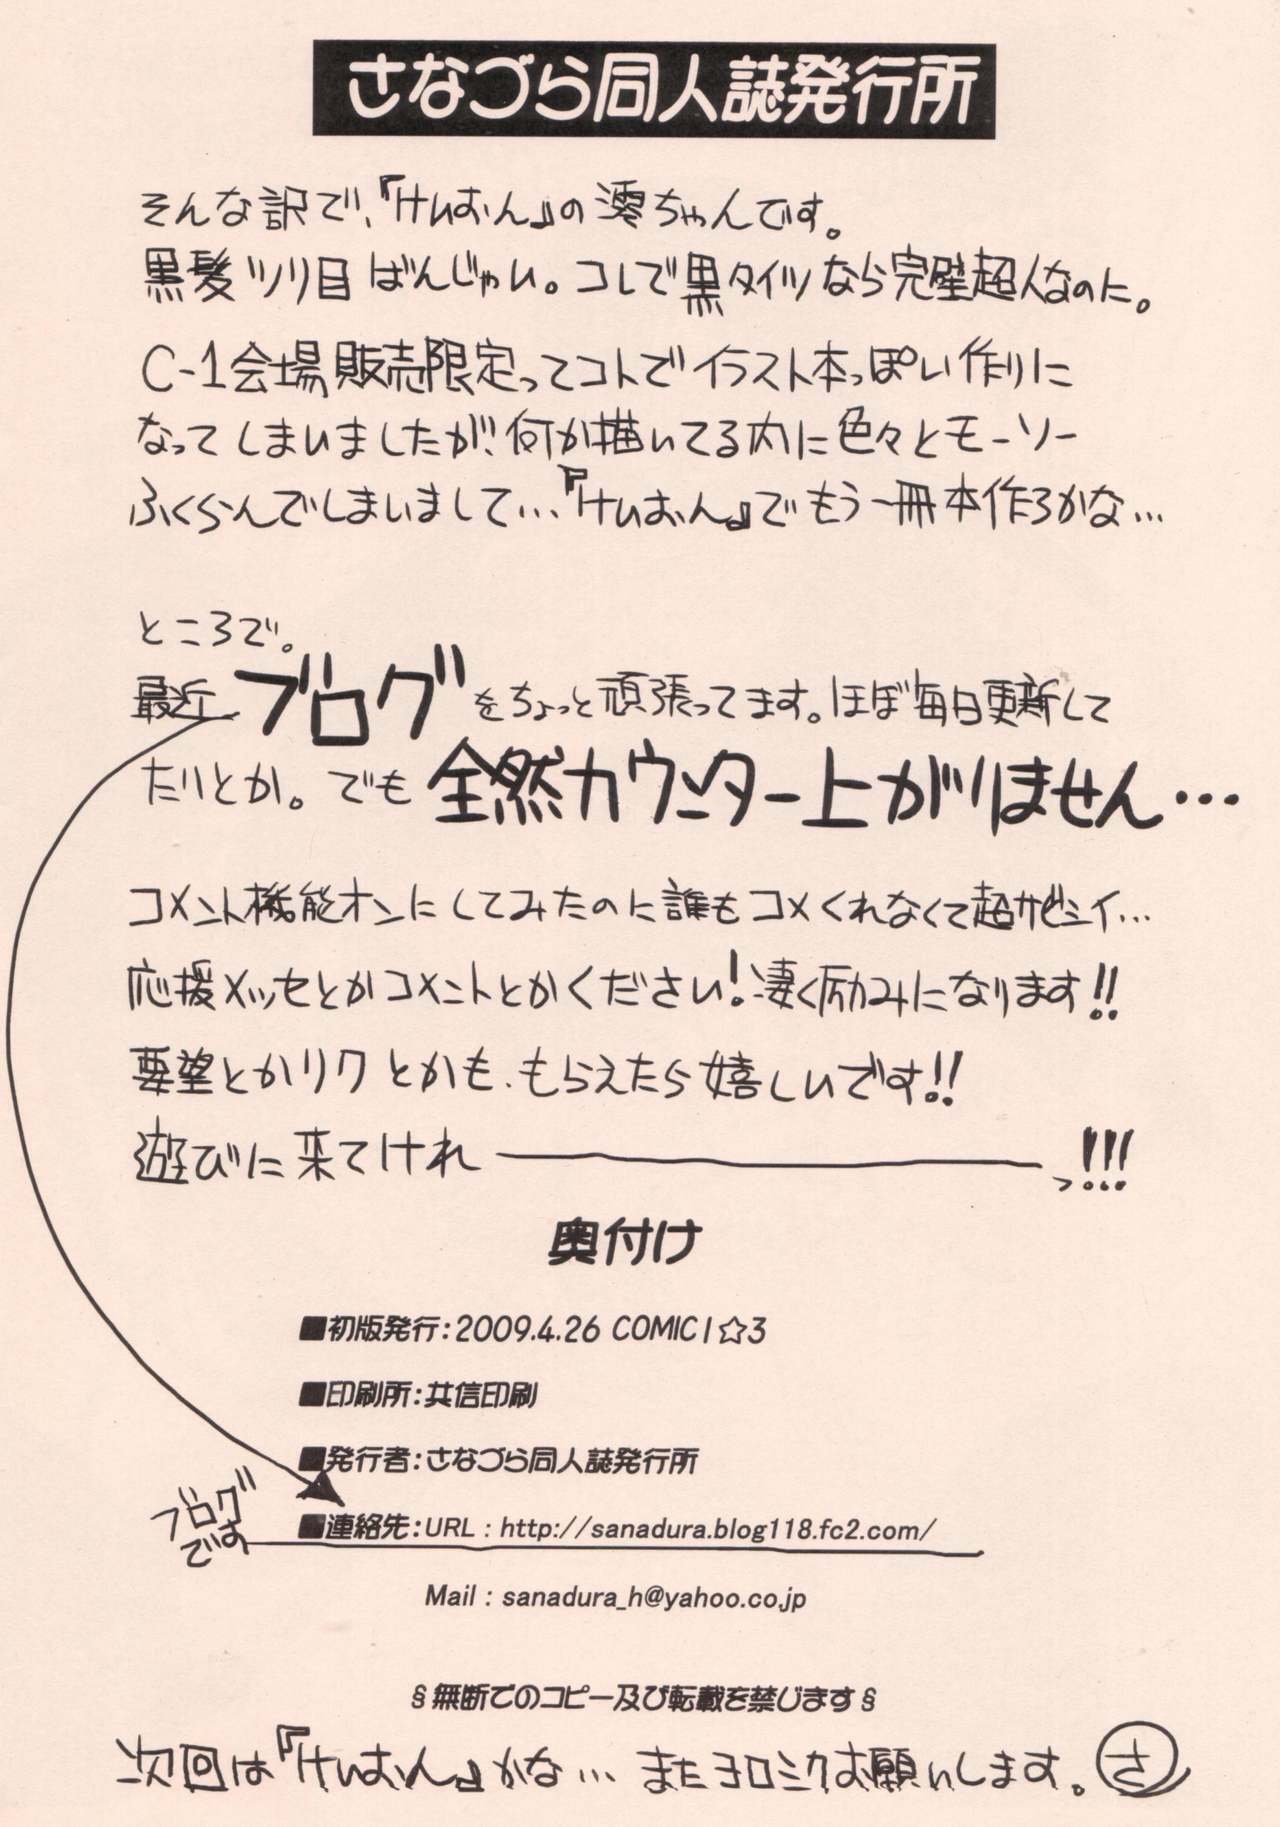 さなづら同人誌発行所
そんな訳で、『けいおん』の澪ちゃんです。
黒髪ツリ目ばんじゃい。コレで黒タイツなら完璧超人なのに。
C-1会場販売限定ってコトでイラスト本っぽい作りに
なってしまいましたが、何か描いてる内に色々とモーソー
ふくらんでしまいまして…『けいおん』でもう一冊本作ろかな…
ところで。
最近ブログをちょっと頑張ってます。ほぼ毎日更新して
たりとか。でも全然カウンター上がりません…
コメント機能オンにしてみたのに誰もコメくれなくて超サビシイ…
応援メッセとかコメントとかください!凄く励みになります!!
要望とかリクとかも、もらえたら嬉しいです!!
遊びに来てけれ――――っ!!!
奥付け
■初版発行:2009.4.26 COMIC1☆3
■印刷所:共信印刷
■発行者:さなづら同人誌発行所
ブログです
■連絡先:URL : http://sanadura.blog118.fc2.com/
Mail : sanadura_h@yahoo.co.jp
§無断でのコピー及び転載を禁じます§
次回は『けいおん』かな… またヨロシクお願いします。さ